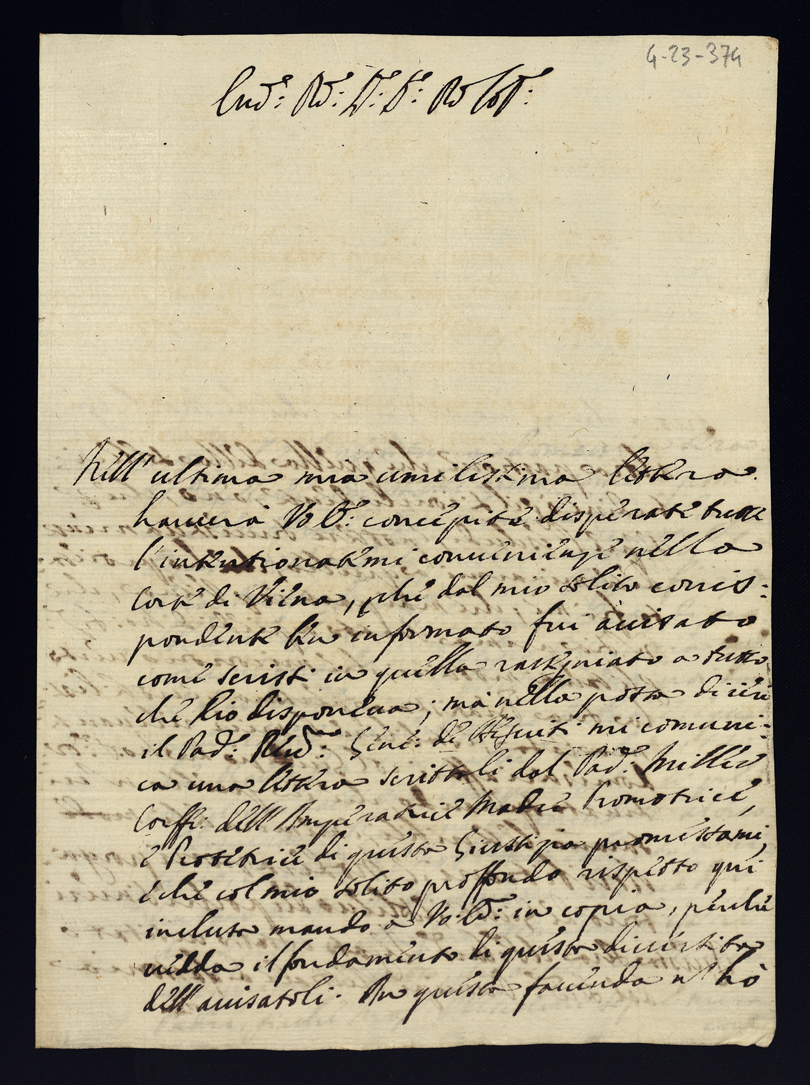 4-23-374
Nell'ultima mia umilissima lettera
haverà V.S: concepite disperate tutte
l'intentionatemi convenienze nella
Corte di Viena, che dal mio solito corris:
pondente ben informato fui avisato
come scrissi in quella rassegniato a tutto
che Dio disponeva; mà nella posta di ieri
il Pad: Gene: de Gesuiti mi comuni:
ca una lettera scrittali dal Pad: Miller
Conff: dell'Imperatrice Madre Promotrice,
e Protetrice di questa Giustizia promessami,
e che col mio solito proffondo rispetto qui
incluso mando a V: in copia, perche
vedda il fondamento di questa
dell'avisatoli. In questa facenda n'hò